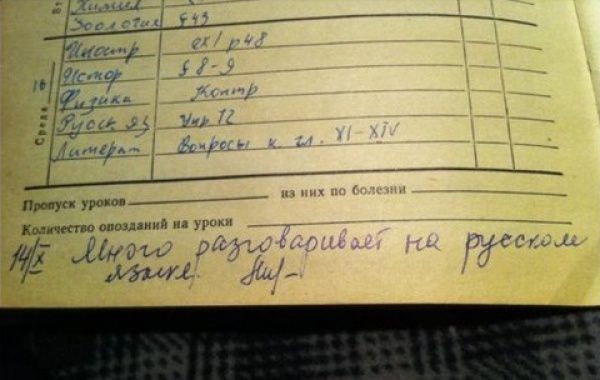 Химия
Зоология §43
Иностр ex1 p48
Истор § 8-9
Физика Контр
16
Среда
Русск яз Упр 72
Литерат Вопросы к гл. XI-XIV
Пропуск уроков из них по болезни
Количество опозданий на уроки
14/X Много разговаривает на русском
языке.